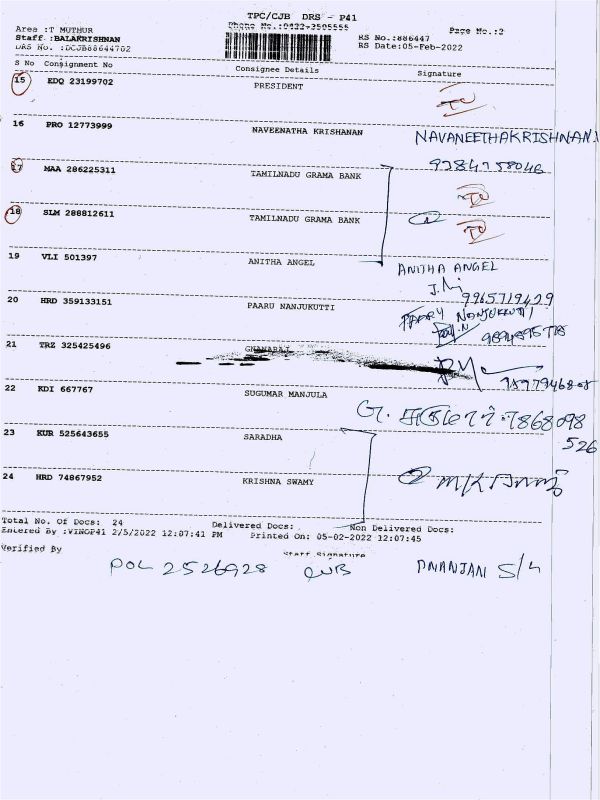 TPC/CJB DRS - P41
Phone No.:0422-3505555
Page No.:2
Area :T MUTHUR
Staff :BALAKRISHNAN
RS No.:886447
DRS No. :DCJB88644702
RS Date:05-Feb-2022
S No Consignment No Consignee Details Signature
15 EDQ 23199702 PRESIDENT
16 PRO 12773999 NAVEENATHA KRISHANAN NAVANEETHAKRISHNAN
9284758046
17 MAA 286225311 TAMILNADU GRAMA BANK
18 SLM 288812611 TAMILNADU GRAMA BANK
19 VLI 501397 ANITHA ANGEL ANITHA ANGEL
9965719429
20 HRD 359133151 PAARU NANJUKUTTI
21 TRZ 325425496 GNANARAJ
22 KDI 667767 SUGUMAR MANJULA
7868098
526
23 KUR 525643655 SARADHA
24 HRD 74867952 KRISHNA SWAMY
Total No. Of Docs: 24 Delivered Docs: Non Delivered Docs:
Entered By :VINOP41 2/5/2022 12:07:41 PM Printed On: 05-02-2022 12:07:45
Verified By Staff Signature
POL 2526928